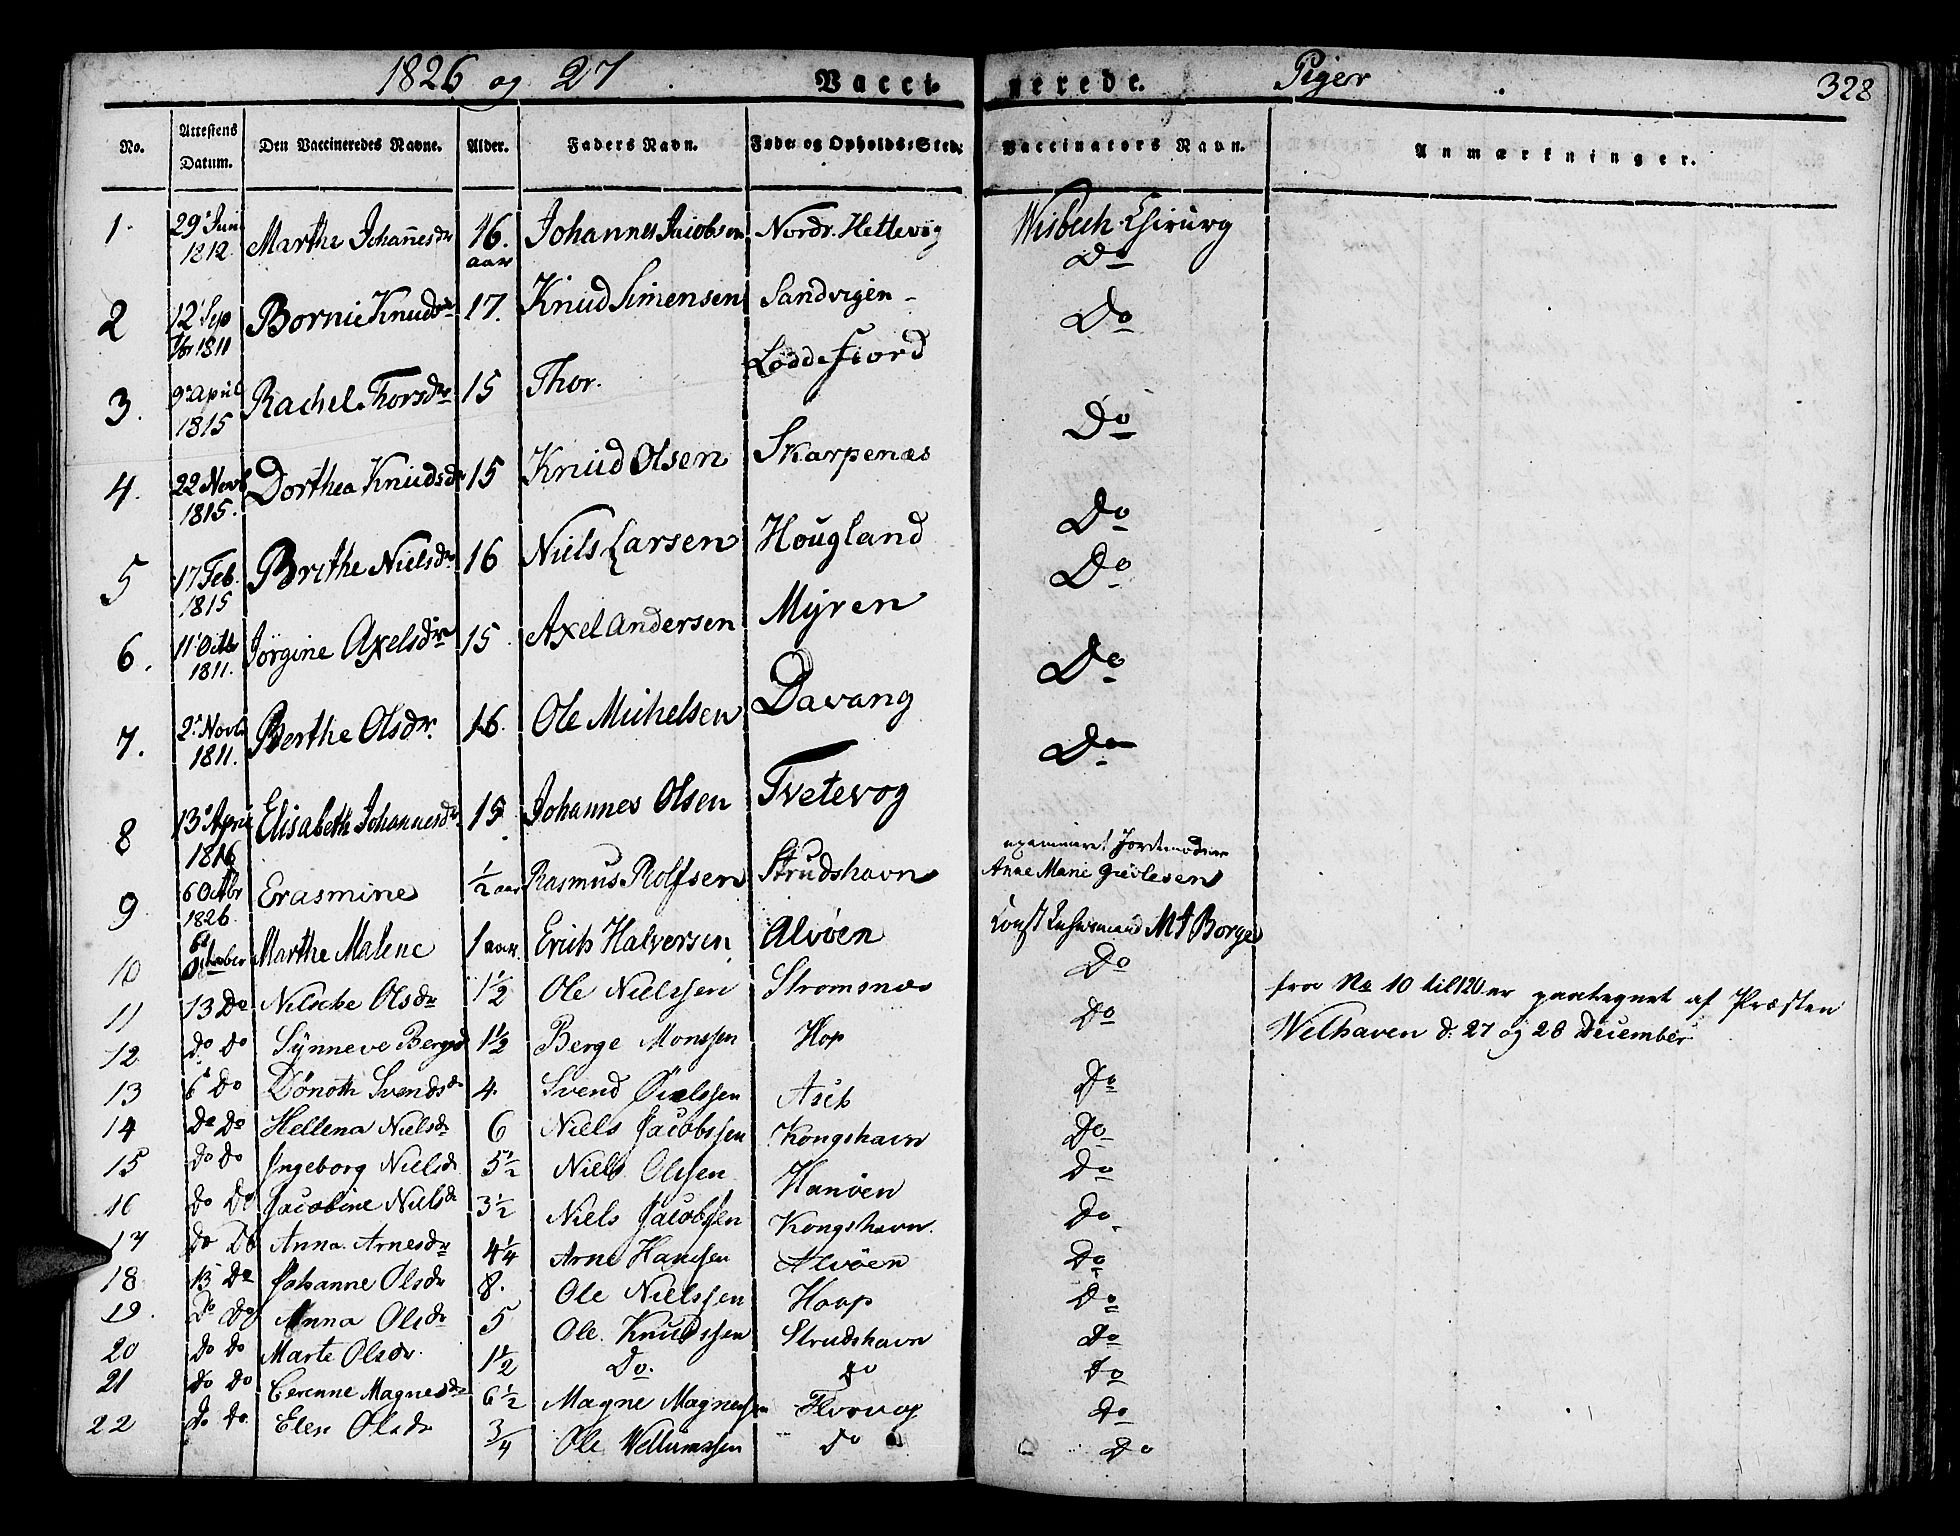 1826 og 27 Vacci- nerede. Piger 328
No. Attestens Datum. Den Vaccineredes Navne. Alder. Faders Navn. Føde- og Opholds-Sted. Vaccinators Navn. Anmærkninger.
1. 29 Juni 1812 Marthe Johannesdr 16. aar Johannes Jacobsen Nordr. Hettevig Wisbech Chirurg
Do
2 12 Sep 7br 1811 Bornie Knudsdr 17. Knud Simensen Sandvigen Do
3. 9 April 1815 Rachel Thorsdr 15 Thor. Loddefiord Do
4. 22 Novb 1815. Dorthea Knudsdr 15 Knud Olsen Skarpenæs Do
5 17 Feb. 1815 Brithe Nielsdr 16 Niels Larsen Hougland Do
6. 11 Octb 1811. Jörgine Axelsdr 15 Axel Andersen Myren Do
7. 2 Novb 1811. Berthe Olsdr. 16 Ole Michelsen Davang Do
8 13 April 1816 Elisabeth Johannesdr 15 Johannes Olsen Tvetevog
9 6 Octbr 1826. Erasmine 1/2 aar Rasmus Rolfsen Strudshavn examineret Jordemoder Anne Marie
10 6 October Marthe Malene 1 aar. Erich Halversen Alvøen Const M J Borge
11 13 Do Nilsche Olsdr 1 1/2 Ole Nielssen Stromsnæs Do
12 Do Do Synneve Bergesd 1 1/2 Berge Monssen Hop Do
fra No 10 til 120 er paategnet af Præsten
Welhaven d. 27 og 28 December
13 6 Do Dønoth Svendsdr 4. Svend Ask Do
14 Do Do Hellena Nielsdr 6 Niels Jacobssen Kongshavn Do
15 Do Do Ingeborg Nielsdr 5 1/2 Niels Olssen Hanøen Do
16 Do Do Jacobine Nielsdr 3 1/2 Niels Jacobssen Kongshavn. Do
17 Do Do Anna Arnesdr 4 1/4 Arne Hanssen Alvöen Do
18 13 Do Johanne Olsdr 8. Ole Nielssen Haap Do
19. Do Do Anna Olsdr 5 Ole Knudssen Strudshavn Do
20 Do Do Marte Olsdr. 1 1/2 Do. Do Do
21 Do Do Cerenne Magnesdr 6 1/2 Magne Magnessen Florvog Do
22 Do Do Elen Olsdr 3/4 Ole Do Do